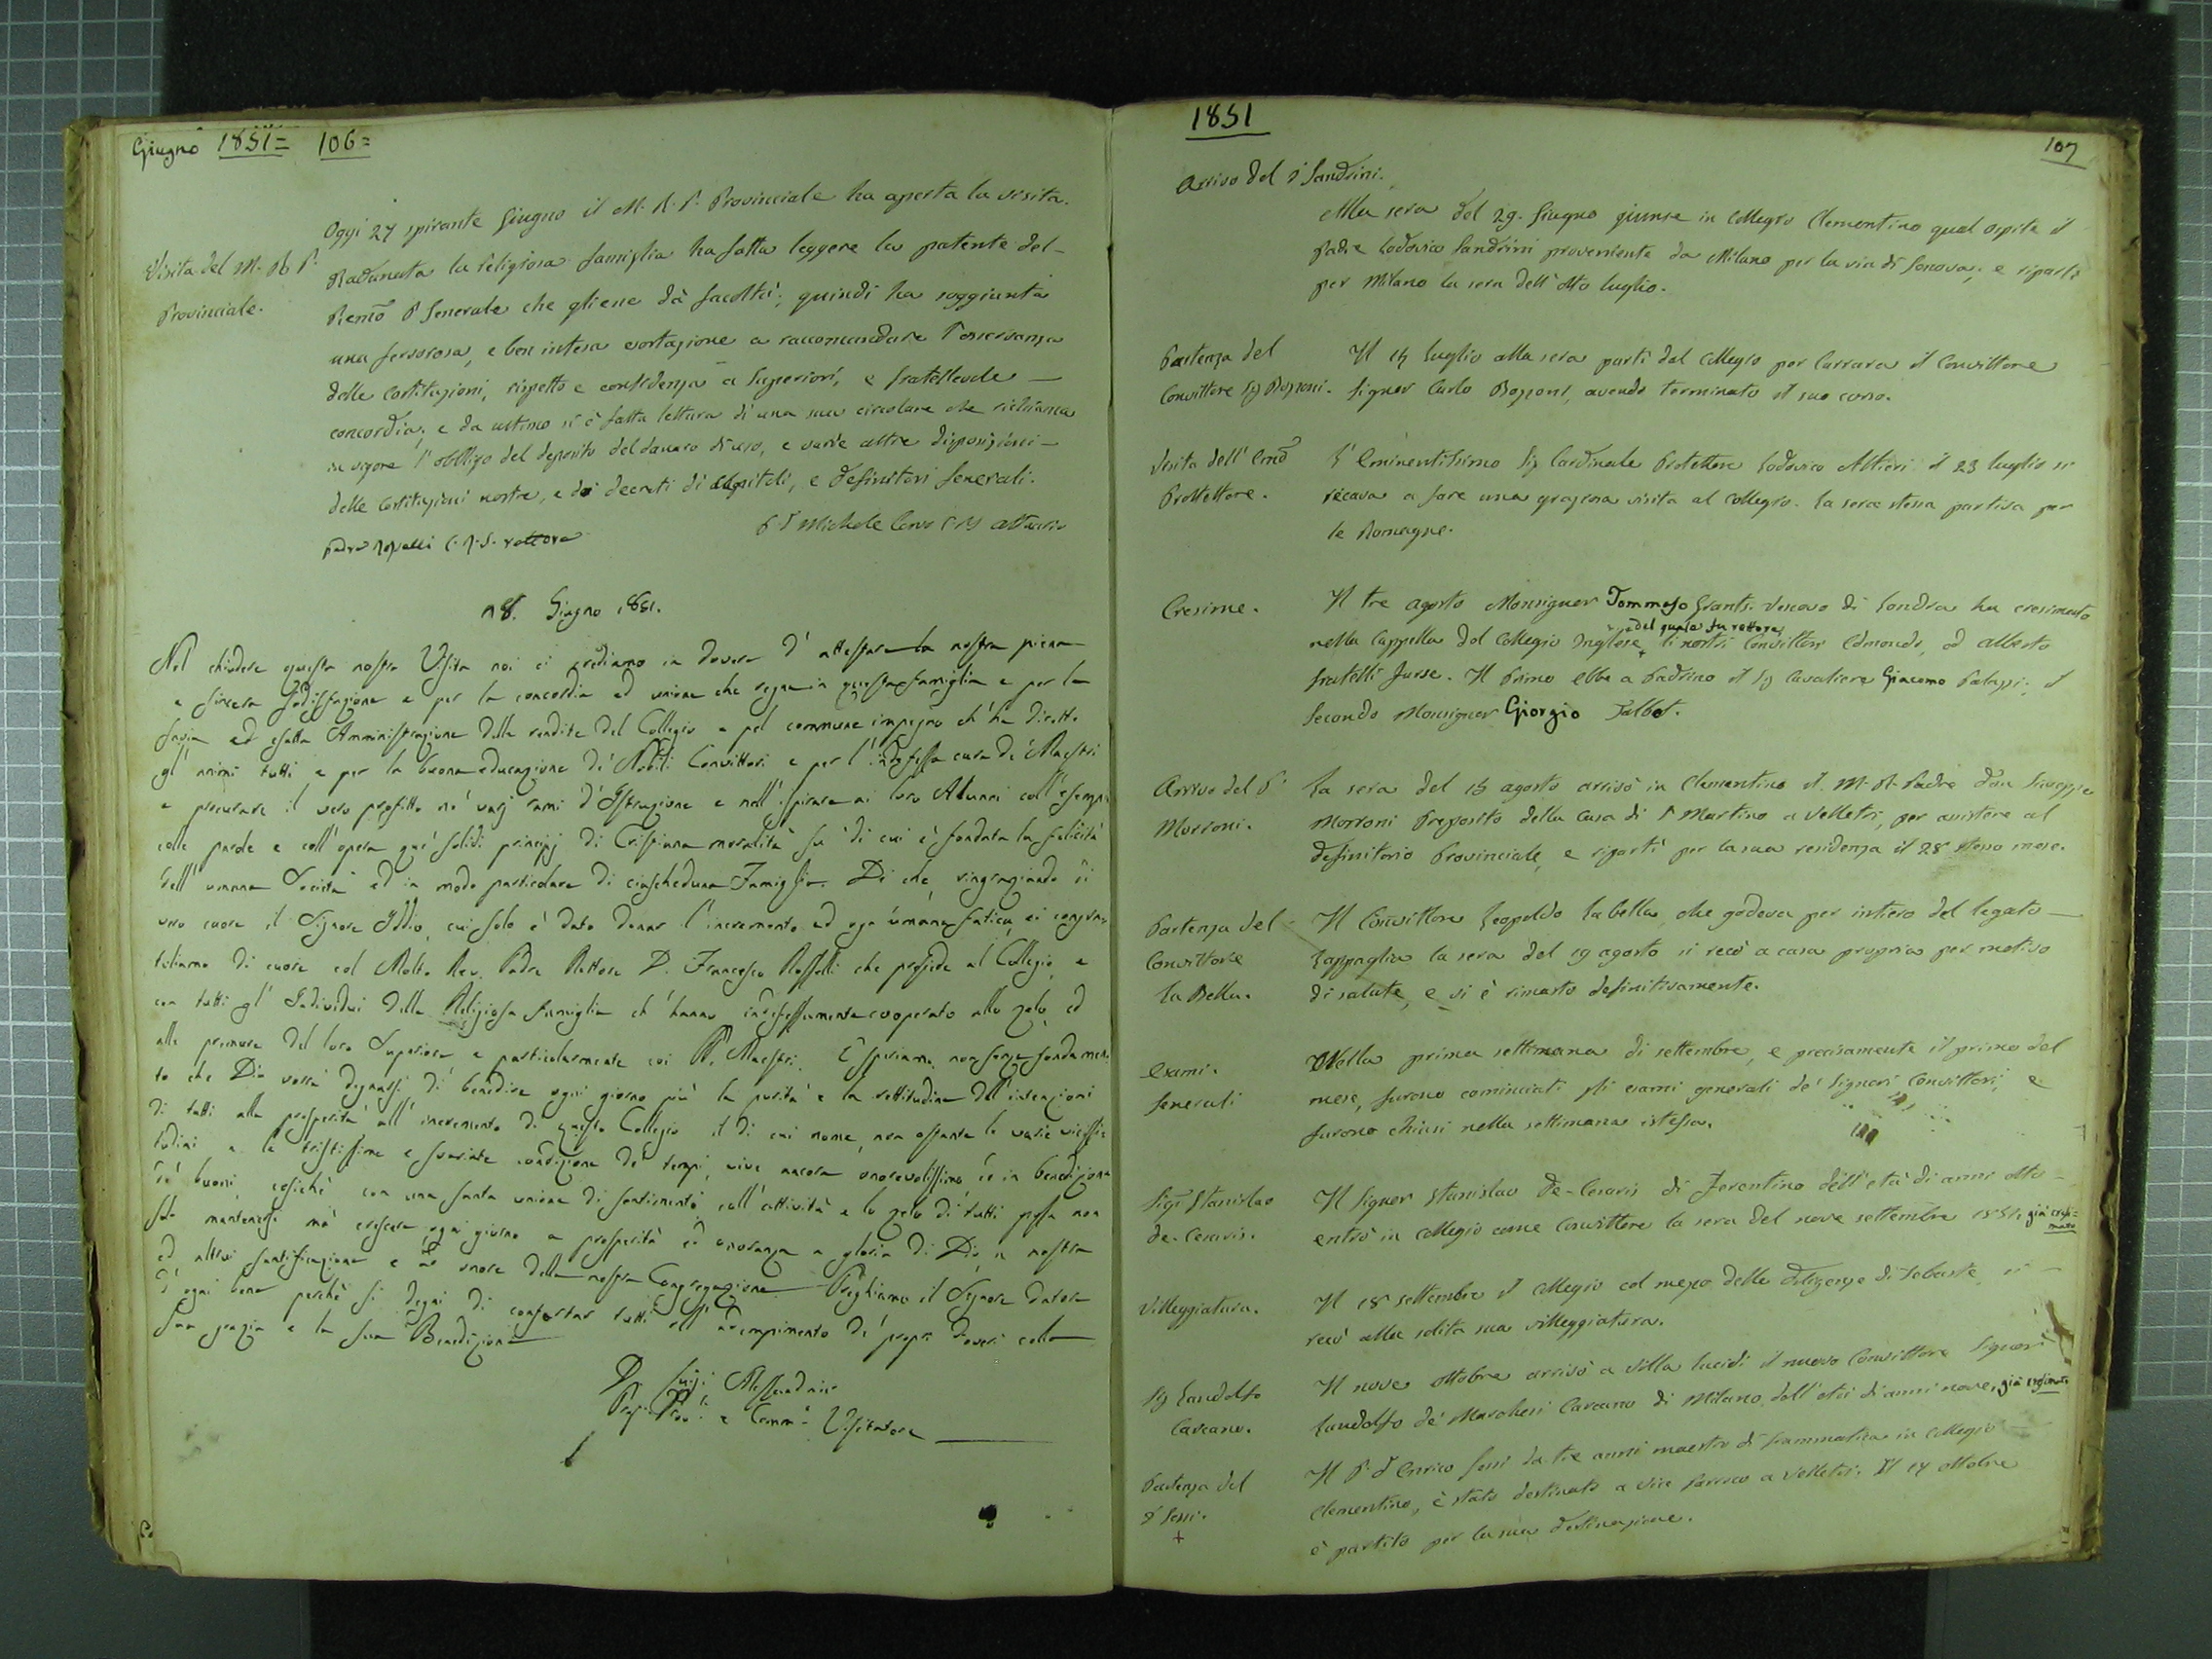 Giugno 1851= 106=
Oggi 27 spirante Giugno il M. R. P. Provinciale ha aperta la visita.
Visita del M. R. P.
Provinciale.
Radunata la religiosa famiglia ha fatta leggere la patente del
Remo P Generale che gliene dà facoltà; quindi ha soggiunta
una fervorosa, e ben intesa esortazione a raccomandare l'osservanza
delle Costituzioni, rispetto e confidenza a' Superiori, e fratellevole
concordia; e da ultimo si è fatta lettura di una sua circolare che richiama
in vigore l'obbligo del deposito del danaro di uso, e varie altre disposizioni
delle Costituzioni nostre, e dei decreti di Capitoli, e Definitori Generali.
P. D Michele CRS attuario
Padre Rosselli C. R. S. rettore
28. Giugno 1851.
Nel chiudere questa nostra Visita noi ci crediamo in dovere d'attestare la nostra piena
e sincera sodisfazione e per la concordia ed unione che regna in questa famiglia e per la
savia ed esatta Amministrazione delle rendite del Collegio e pel commune impegno ch'ha diretto
gl'animi tutti e per la buona educazione de' Nobili Convittori e per l'indefessa cura de' Maestri
e procurare il vero profitto ne' varj rami d'Istruzione e nell'ispirare ai loro Alunni coll'esempio
colle parole e coll'opera que' solidi principj di Cristiana moralità su di cui è fondata la felicità
dell'umana Società ed in modo particolare di ciascheduna Famiglia. Di che, ringraziando di
vero cuore il Signore Iddio, cui solo è dato donar l'incremento ad ogn'umana fatica, ci congra-
tuliamo di cuore col Molto Rev. Padre Rettore D. Francesco Rosselli che presiede al Collegio, e
con tutti gl'Individui della Religiosa famiglia ch'hanno indefessamente cooperato allo zelo, ed
alle premure del loro Superiore e particolarmente coi PP. Maestri. E speriamo non senza fondamen-
to che Dio vorrà degnarsi di benedire ogni giorno più la purità e la rettitudine dell'intenzioni
di tutti alla prosperità all'incremento di questo Collegio il di cui nome, non ostante le varie vicissi-
tudini e le tristissime e svariate condizione de' tempi, vive ancora onorevolissimo ed in benedizione
de' buoni, cosichè con una santa unione di sentimenti coll'attività e lo zelo di tutti possa non
solo mantenersi mà crescere ogni giorno a prosperità ed onoranza a gloria di Dio, a nostra
ed altrui santificazione e ad onore della nostra Congregazione. Preghiamo il Signore datore
d'ogni bene perchè si degni di confortar tutti all'adempimento de' proprj doveri colla
sua grazia e la sua Benedizione
D. Luigi Alessandrini
Prep. Prov. e Comm. Visitatore
1851
107
Arrivo del P Sandrini.
Alla sera del 29. Giugno giunse in Collegio Clementino qual ospite il
Padre Lodovico Sandrini proveniente da Milano per la via di Genova; e ripartì
per Milano la sera dell'otto luglio.
Partenza del
Convittore Sig Bozzoni.
Il 14 luglio alla sera partì dal Collegio per Carrara il Convittore
Signor Carlo Bozzoni, avendo terminato il suo corso.
Visita dell'Emo
Protettore.
L'Eminentissimo Sig Cardinale Protettore Lodovico Altieri il 23 luglio si
recava a fare una graziosa visita al Collegio. La sera stessa partiva per
le Romagne.
Cresime.
Il tre agosto Monsignor Tommaso Grants. Vescovo di Londra ha cresimato
del quale fu rettore
nella Cappella del Collegio Inglese, li nostri Convittori Edmondo, ed Alberto
fratelli Jurse. Il Primo ebbe a Padrino il Sig Cavaliere Giacomo Palazzi; il
Secondo Monsignor Giorgio Talbot.
Arrivo del P.
Morroni.
La sera del 15 agosto arrivò in Clementino il M. R. Padre don Giuseppe
Morroni Preposito della Casa di S Martino a Velletri, per assistere al
definitorio Provinciale, e ripartì per la sua residenza il 28 stesso mese.
Partenza del
Convittore
La Bella.
Il Convittore Leopoldo La bella, che godeva per intiero del legato
Zappaglia la sera del 19 agosto si recò a casa propria per motivo
di salute, e vi è rimasto definitivamente.
Esami.
Generali
Nella prima settimana di settembre, e precisamente il primo del
mese, furono cominciati gli esami generali de' Signori Convittori, e
furono chiusi nella settimana istessa.
Sigr Stanislao
de-Cesaris.
Il Signor Stanislao De-Cesaris di Ferentino dell'età di anni otto
entrò in Collegio come Convittore la sera del nove settembre 1851. già cresi=
mato
Villeggiatura.
Il 18 settembre il Collegio col mezzo delle diligenze di Sebaste, si
recò alla solita sua villeggiatura.
Sig Landolfo
Carcano.
Il nove ottobre arrivò a Villa Lucidi il nuovo Convittore Signor
Landolfo de' Marchesi Carcano di Milano, dell'età di anni nove, già cresimato
Partenza del
P Gessi.
+
Il P. D Enrico Gessi da tre anni maestro di Grammatica in Collegio
Clementino, è stato destinato a Vice Parroco a Velletri. Il 14 ottobre
è partito per la sua destinazione.